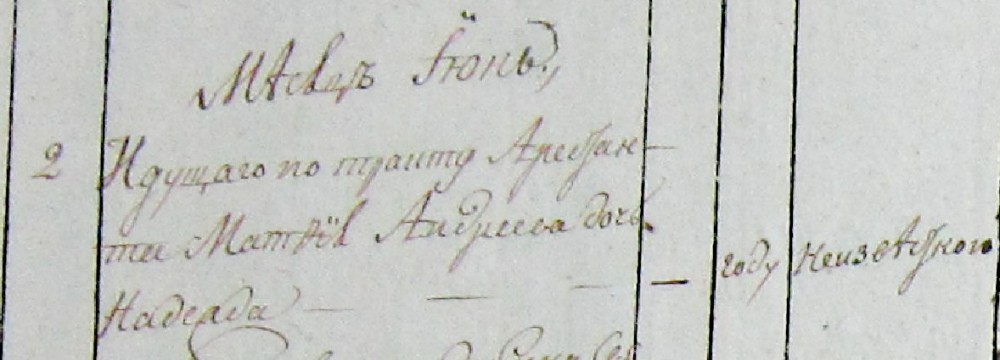 Мѣсяцъ Іюнь.
2 Идущаго по тракту Арестан-
та Матѣй Андреева дочь
Надежда — году Неизвѣстного